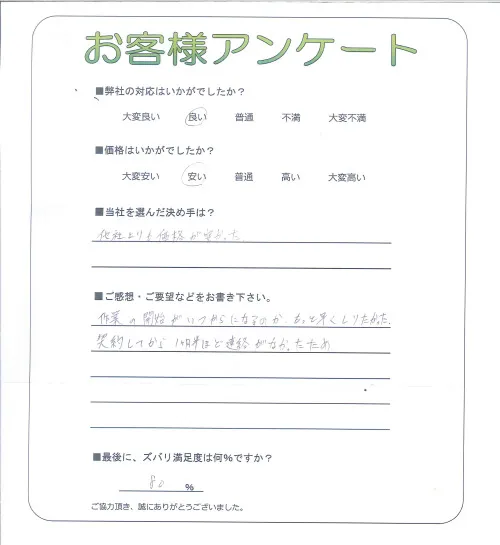 お客様アンケート
■弊社の対応はいかがでしたか？
大変良い 良い 普通 不満 大変不満
■価格はいかがでしたか？
大変安い 安い 普通 高い 大変高い
■当社を選んだ決め手は？
他社よりも価格が安かった
■ご感想・ご要望などをお書き下さい。
作業の開始がいつからになるのかもっと早くしりたかった。
契約してから1ヶ月半ほど連絡がなかったため
■最後に、ズバリ満足度は何％ですか？
80 ％
ご協力頂き、誠にありがとうございました。